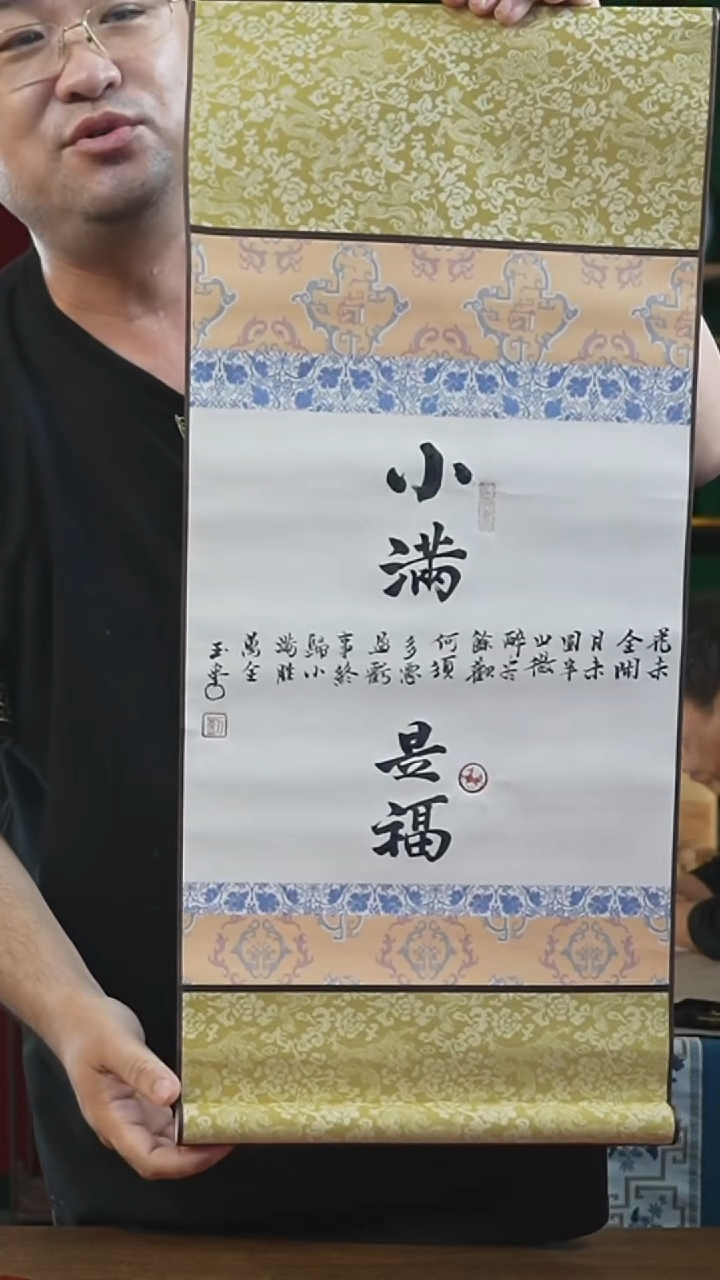 小满
是福
花未
全開
月未
圓半
山微
醉尽
餘歡
何須
多慮
盈虧
事終
歸小
满胜
萬全
玉